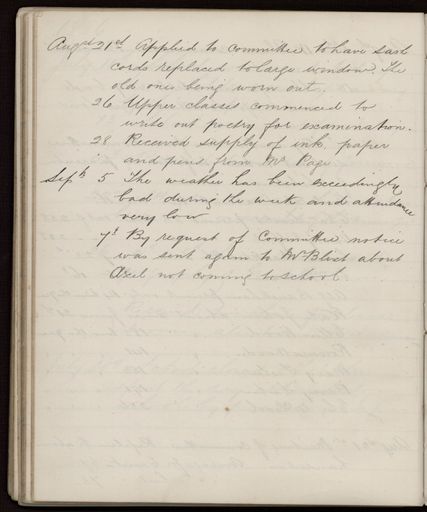 Augst 21st Applied to Committee to have sash
cords replaced to large window. The
old ones being worn out.
26 Upper classes commenced to
write out poetry for examination.
28 Received supply of ink, paper
and pens from Mr Page
Septr 5 The weather has been exceedingly
bad during the week and attendance
very low
7th By request of Committee notice
was sent again to Mr Block about
Axel not coming to school